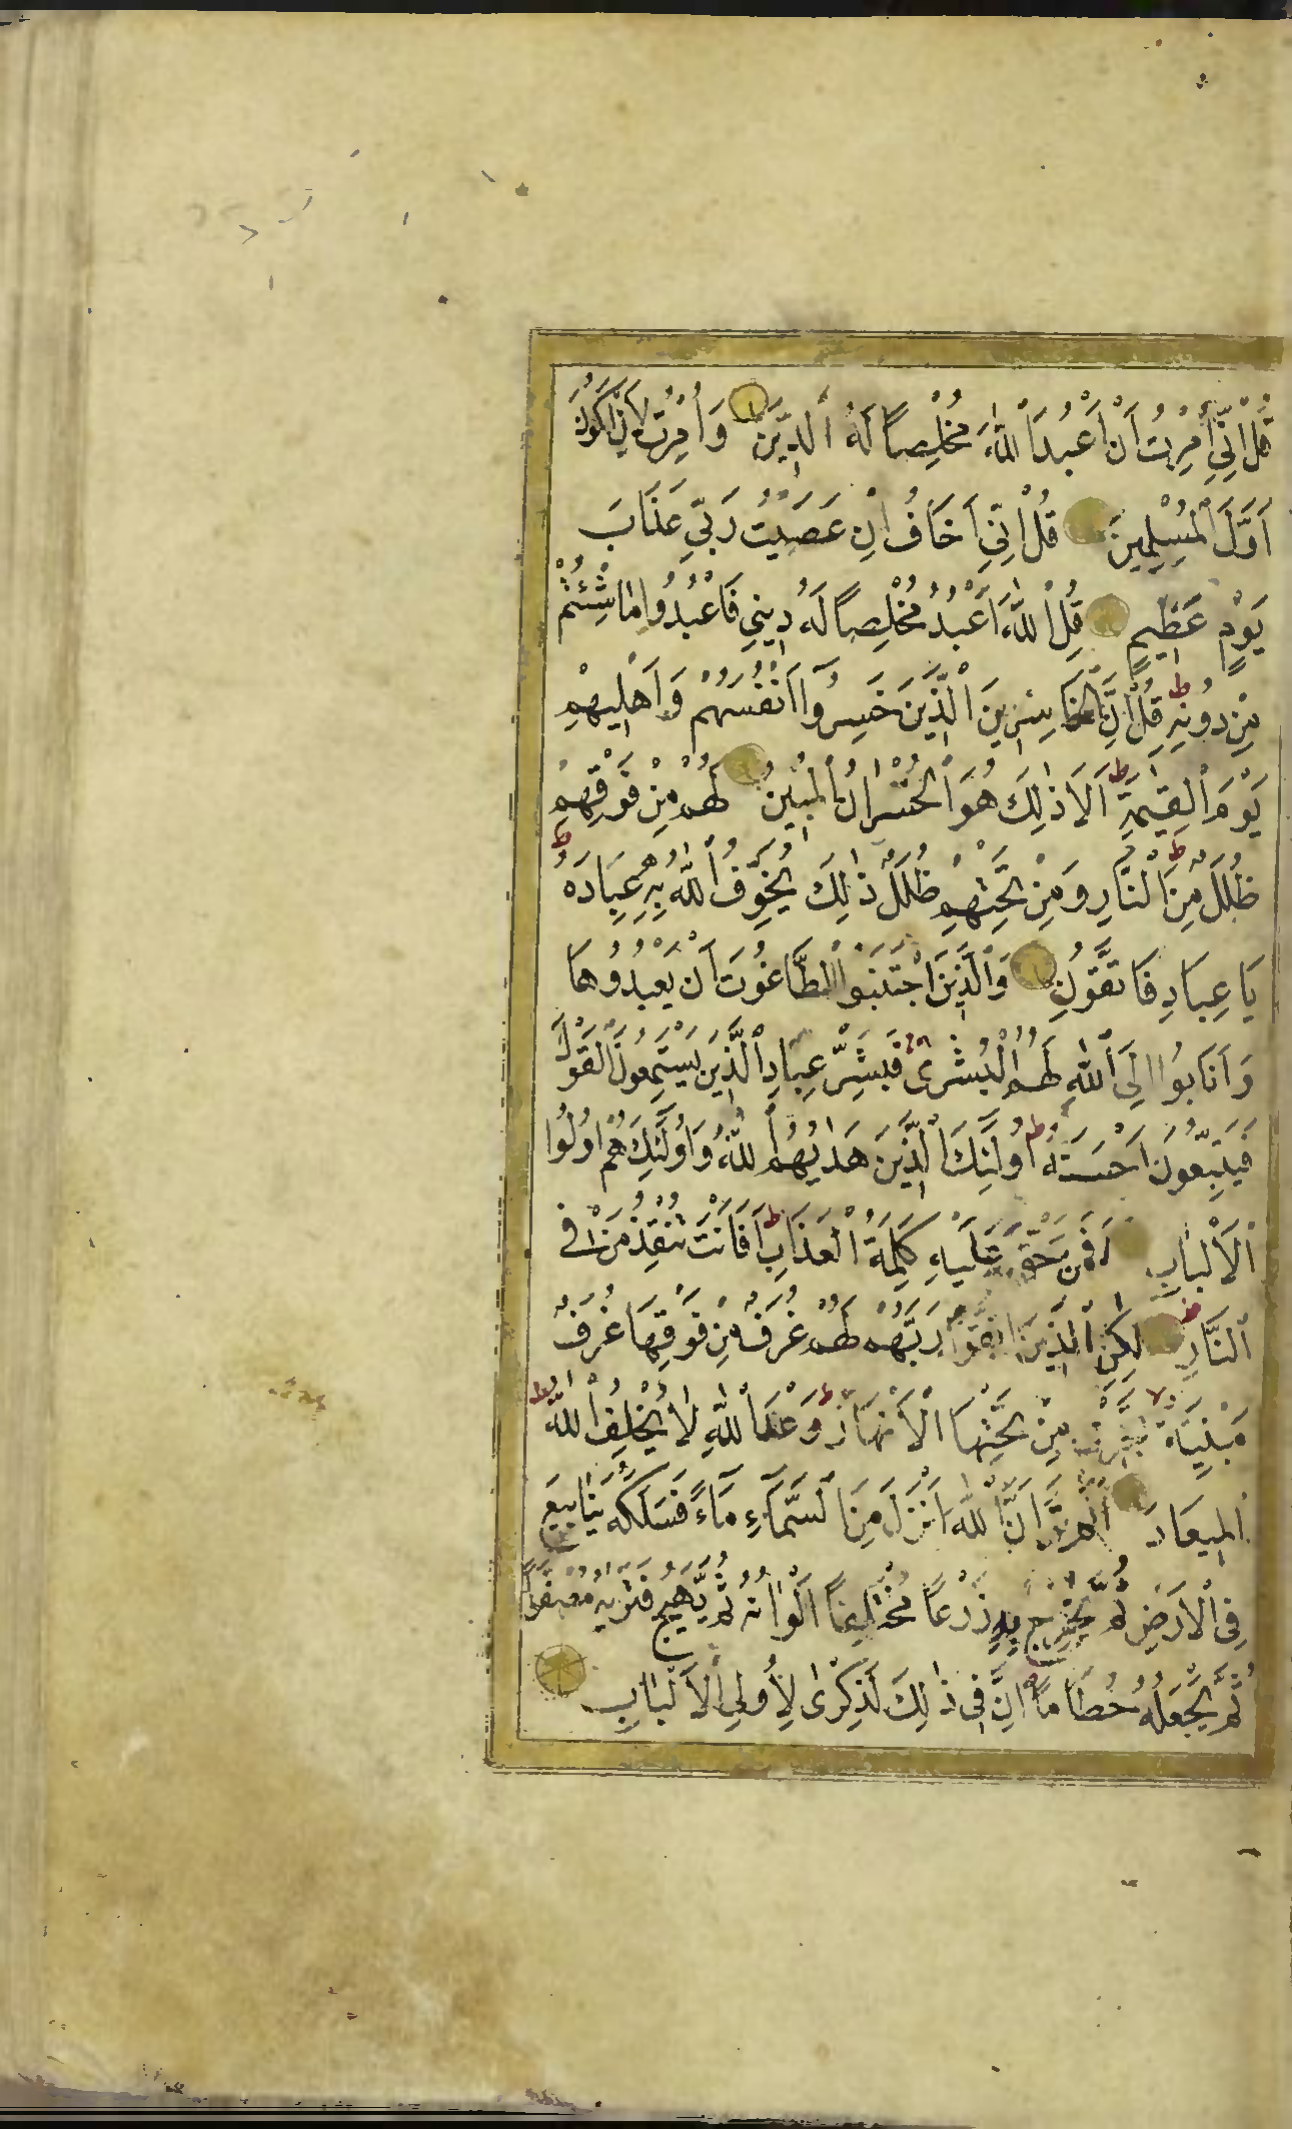 قُلْ اِنِّي اُمِرْتُ اَنْ اَعْبُدَ اللّٰهَ مُخْلِصًا لَهُ الدِّينَ وَاُمِرْتُ لِاَنْ اَكُونَ
اَوَّلَ الْمُسْلِمِينَ قُلْ اِنِّي اَخَافُ اِنْ عَصَيْتُ رَبِّي عَذَابَ
يَوْمٍ عَظِيمٍ قُلِ اللّٰهَ اَعْبُدُ مُخْلِصًا لَهُ دِينِي فَاعْبُدُوا مَا شِئْتُمْ
مِنْ دُونِهِ ط قُلْ اِنَّ الْخَاسِرِينَ الَّذِينَ خَسِرُوا اَنْفُسَهُمْ وَاَهْلِيهِمْ
يَوْمَ الْقِيٰمَةِ ط اَلَا ذٰلِكَ هُوَ الْخُسْرَانُ الْمُبِينُ لَهُمْ مِنْ فَوْقِهِمْ
ظُلَلٌ مِنَ النَّارِ وَمِنْ تَحْتِهِمْ ظُلَلٌ ط ذٰلِكَ يُخَوِّفُ اللّٰهُ بِهِ عِبَادَهُ ط
يَا عِبَادِ فَاتَّقُونِ وَالَّذِينَ اجْتَنَبُوا الطَّاغُوتَ اَنْ يَعْبُدُوهَا
وَاَنَابُوا اِلَى اللّٰهِ لَهُمُ الْبُشْرٰى فَبَشِّرْ عِبَادِ الَّذِينَ يَسْتَمِعُونَ الْقَوْلَ
فَيَتَّبِعُونَ اَحْسَنَهُ ط اُولٰئِكَ الَّذِينَ هَدٰيهُمُ اللّٰهُ وَاُولٰئِكَ هُمْ اُولُوا
الْاَلْبَابِ اَفَمَنْ حَقَّ عَلَيْهِ كَلِمَةُ الْعَذَابِ ط اَفَاَنْتَ تُنْقِذُ مَنْ فِي
النَّارِ لٰكِنِ الَّذِينَ اتَّقَوْا رَبَّهُمْ لَهُمْ غُرَفٌ مِنْ فَوْقِهَا غُرَفٌ
مَبْنِيَّةٌ لا تَجْرِي مِنْ تَحْتِهَا الْاَنْهَارُ ط وَعْدَ اللّٰهِ لَا يُخْلِفُ اللّٰهُ ط
الْمِيعَادَ اَلَمْ تَرَ اَنَّ اللّٰهَ اَنْزَلَ مِنَ السَّمَاءِ مَاءً فَسَلَكَهُ يَنَابِيعَ
فِي الْاَرْضِ ثُمَّ يُخْرِجُ بِهِ زَرْعًا مُخْتَلِفًا اَلْوَانُهُ ثُمَّ يَهِيجُ فَتَرٰيهُ مُصْفَرًّا
ثُمَّ يَجْعَلُهُ حُطَامًا اِنَّ فِي ذٰلِكَ لَذِكْرٰى لِاُولِي الْاَلْبَابِ